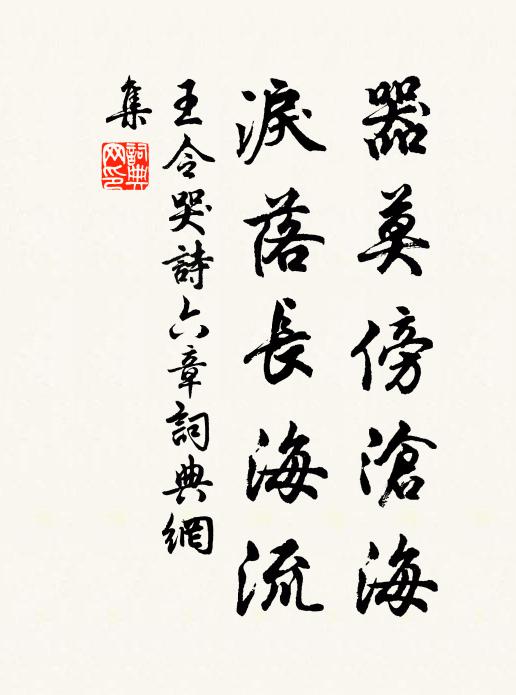 器莫傍滄海
淚落長海流
王令哭詩六章詞典網
集
詞典
网印